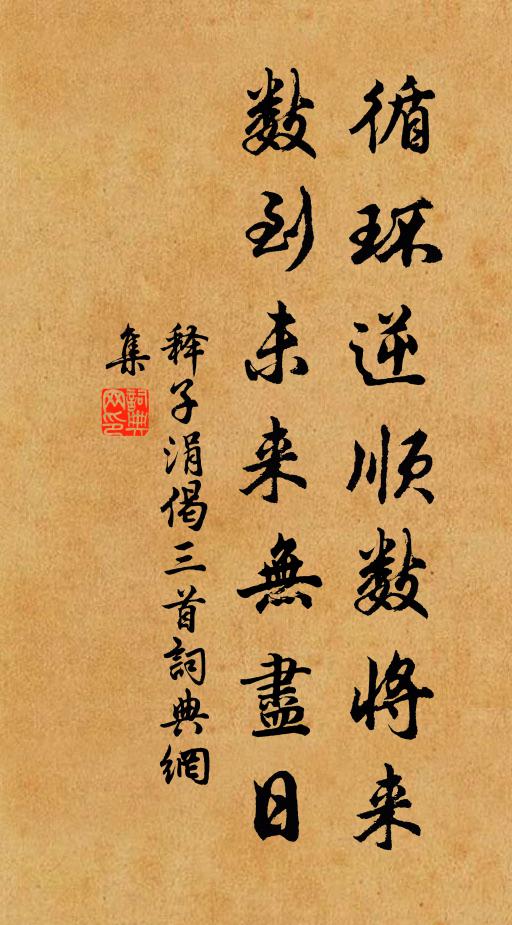 循环逆顺数将来
数到未来無盡日
释子涓偈三首詞典網
集
詞典網印